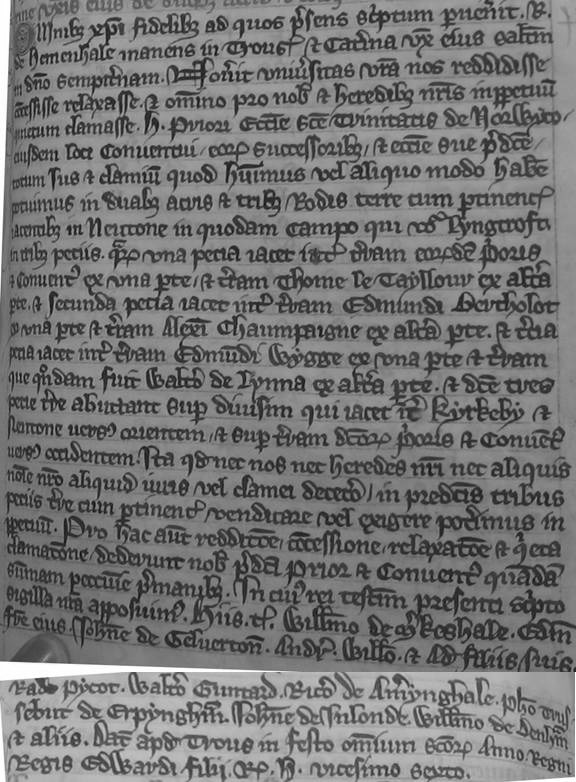 Omnibȝ xp̄i fidelibȝ ad quos p̄sens sc̄ptum puen̄it. R.
de Hemenhale manens in Trous᷒ ⁊ Cat̄ina vx̄ eius salt̄m
in dn̄o sempit̄nam. Nou̾it vniu̾sitas vr̄a nos reddidisse
cōcessisse relaxasse ⁊ om̄ino pro nob̄ ⁊ heredibȝ nr̄is inppetuū
quietum clamasse. H. Priori Eccl̄ie Sc̄e Trinitatis de Norwyco /
eiusdem loci Conuentui / eorꝝ Successoribȝ / ⁊ eccl̄ie sue p̄dc̄e /
totum Jus ⁊ clamiū quod hūimus vel aliquo modo hab̄e
potuimus in duabȝ acris ⁊ tribȝ Rodis terre cum ptinenc̄
iacentibȝ in Neutone in quodam campo qui voc̄ Lyngcroft
in tribȝ peciis. q̄rꝝ vna pecia iacet int̄ t̄ram eorꝝdē p̄oris
⁊ Conuent᷒ ex vna pte / ⁊ t̄ram Thome le Tayllour ex alt̄a
pte. ⁊ secunda pecia iacet int̄ t̄ram Edmundi Bertholot
ex vna pte ⁊ t̄ram Alex̄i Chaumpaigne ex alt̄a pte. ⁊ t̄cia
pecia iacet int̄ t̄ram Edmūdi Wygge ex vna pte ⁊ t̄ram
que qn̄dam fuit Walt̄i de Lynna ex alt̄a pte. ⁊ dc̄e tres
pecie t̄re abuttant sup diuisim qui iacet int̄ Kyrkeby ⁊
Neutone uers᷒ orientem / ⁊ sup t̄ram dc̄orꝝ p̄oris ⁊ Conuent᷒
uers᷒ occidentem. Ita qd nec nos nec heredes nr̄i nec aliquis
noīe nr̄o aliquid iuris vel clamei decet̄o / in predc̄is tribus
peciis t̄re cum ptinenc̄ / vendicare vel exigere pot̄imus in
ppetuū. Pro hac aūt reddic̄oe / cōcessione / relaxac̄oe ⁊ q̄eta
clamac̄one / dederunt nob̄ p̄dc̄i Prior ⁊ Conuent᷒ quādā
sūmam peccuīe p̄manibȝ. In cui᷒ rei testīm presenti sc̄pto
sigilla nr̄a apposuim᷒. Hiis. t̄. Will̄mo de Keshale. Edm̄
fr̄e eius. Joh̄ne de Geluerton̄. Andr̄. Will̄o. ⁊ Ad̄ filiis suis.
Rad̄o Pycot. Walt̄o Guntard. Ric̄o de Am̄ynghale.
de Erpyngh̄m. Joh̄ne de Will̄mo de Denh̄m
⁊ aliis. Dat̄ apd Trous in festo om̄ium Sc̄orꝝ Anno Regni
Regis Edwardi filii Rꝝ. H. vicesimo sexto.